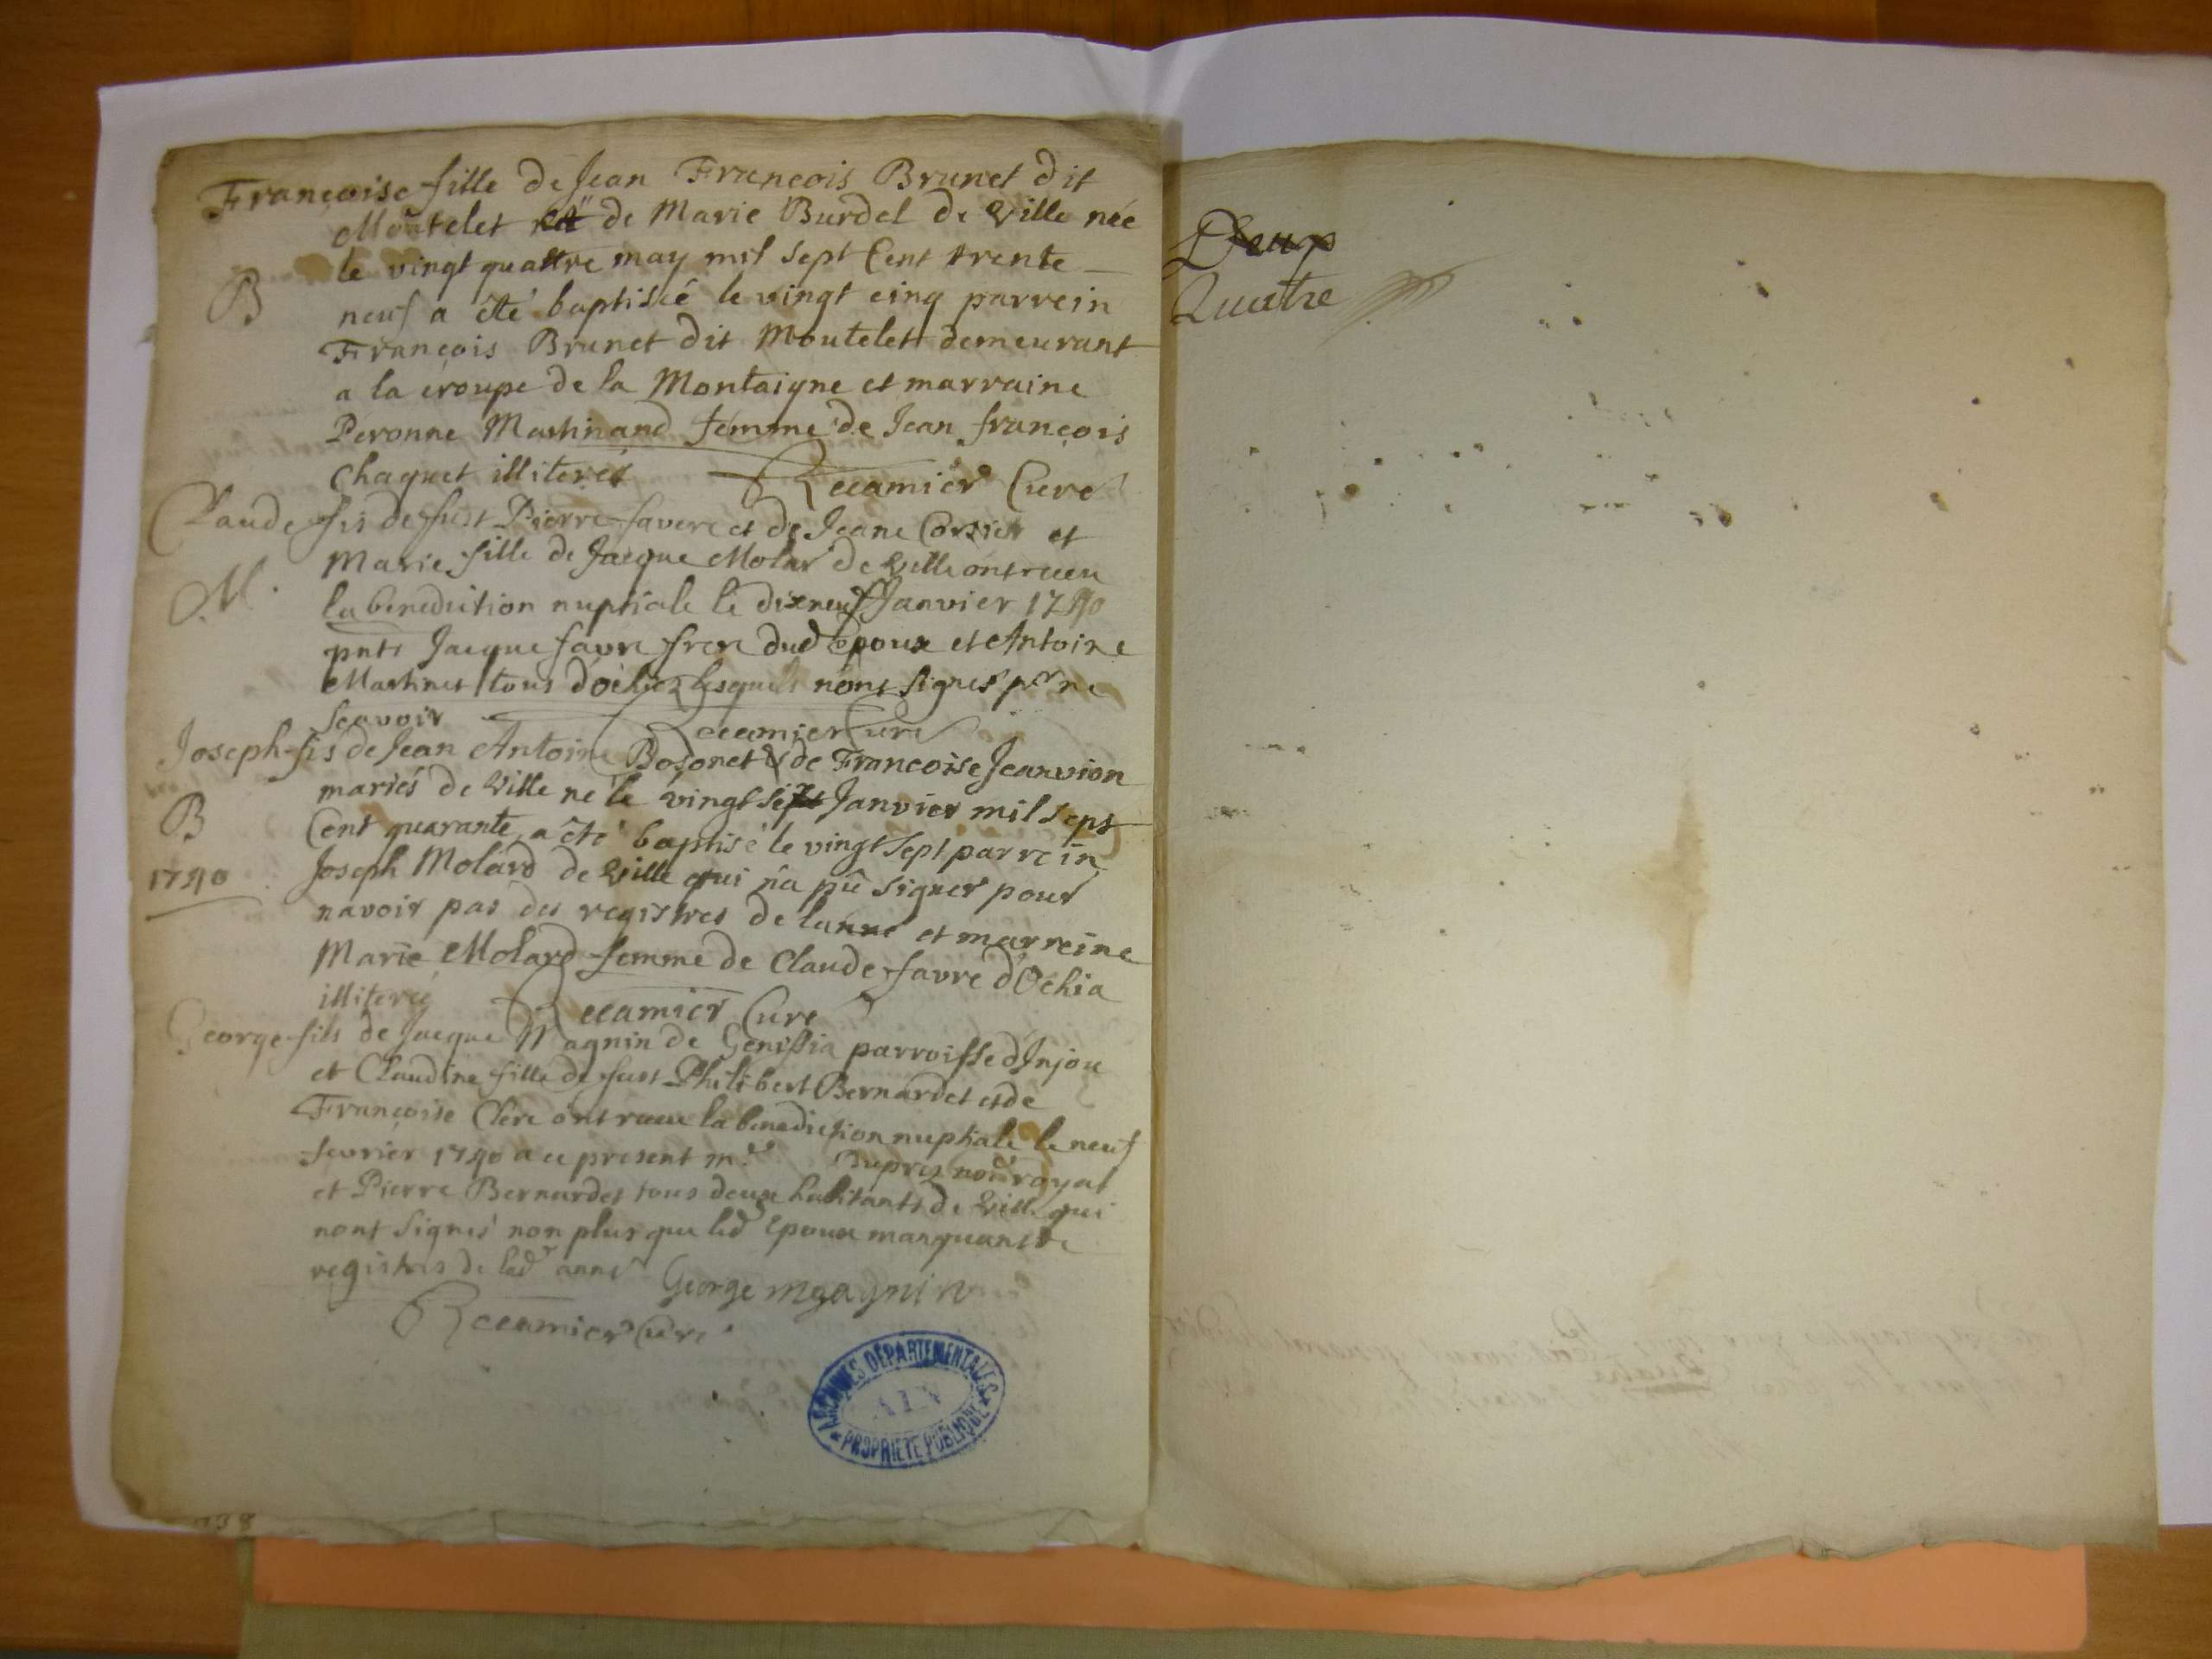 Françoise fille de Jean François Brunet dit
Moutelet et de Marie Burdel de Ville née
le vingt quattre may mil sept Cent trente
B
neuf a été baptisée le vingt cinq parrein
François Brunet dit Moutelet demeurant
a la croupe de la Montaigne et marraine
Peronne Martinand femme de Jean françois
Chaquet illiterés Recamier Curé
Claude fis de fust Pierre favre et de Jeane et
Marie fille de Jacque Molar de Ville ont receu
M.
la benediction nuptiale le dixneuf Janvier 1740
pnts Jacque favre frere dud Epoux et Antoine
Martinet tous d'ochiaz lesquels n'ont signes pr ne
scavoir Recamier Curé
Joseph fis de Jean Antoine Bosonet & de Francoise Jeanvion
mariés de Ville né le vingt Janvier mil sept
B
Cent quarante a été baptisé le vingt sept parrein
1740
Joseph Molard de Ville qui n'a pû signer pour
navoir pas des registres de lanné et marreine
Marie Molard femme de Claude favre d'Ochia
illiteré Recamier Curé
George fils de Jacque Magnin de Genissia parroisse d'Injou
et Claudine fille de fust Philibert Bernardet et de
Françoise Clerc ont receu la benediction nuptiale le neuf
fevrier 1740 a ce present me Dupres nore royal
et Pierre Bernardet tous deux habitants de Ville qui
nont signés non plus que led Epoux manquant de
registres de lad anné George magnin
Recamier Curé
ARCHIVES DÉPARTEMENTALES
AIN
PROPRIÉTÉ PUBLIQUE
Deux
Quatre